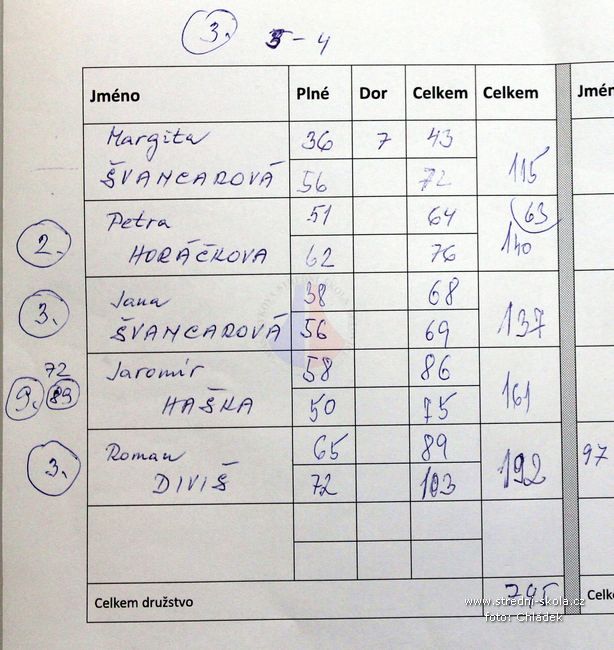 3. 5-4
Jméno Plné Dor Celkem Celkem Jmén
Margita 36 7 43
ŠVANCAROVÁ 56 72 115
Petra 51 64 63
2. HORÁČKOVA 62 76 140
Jana 38 68
3. ŠVANCAROVÁ 56 69 137
72 Jaromír 58 86
9. 89 HAŠKA 50 75 161
Roman 65 89 97
3. DIVIŠ 72 103 192
Celkem družstvo 745 Celk
www.stredni-skola.cz
foto: Chládek